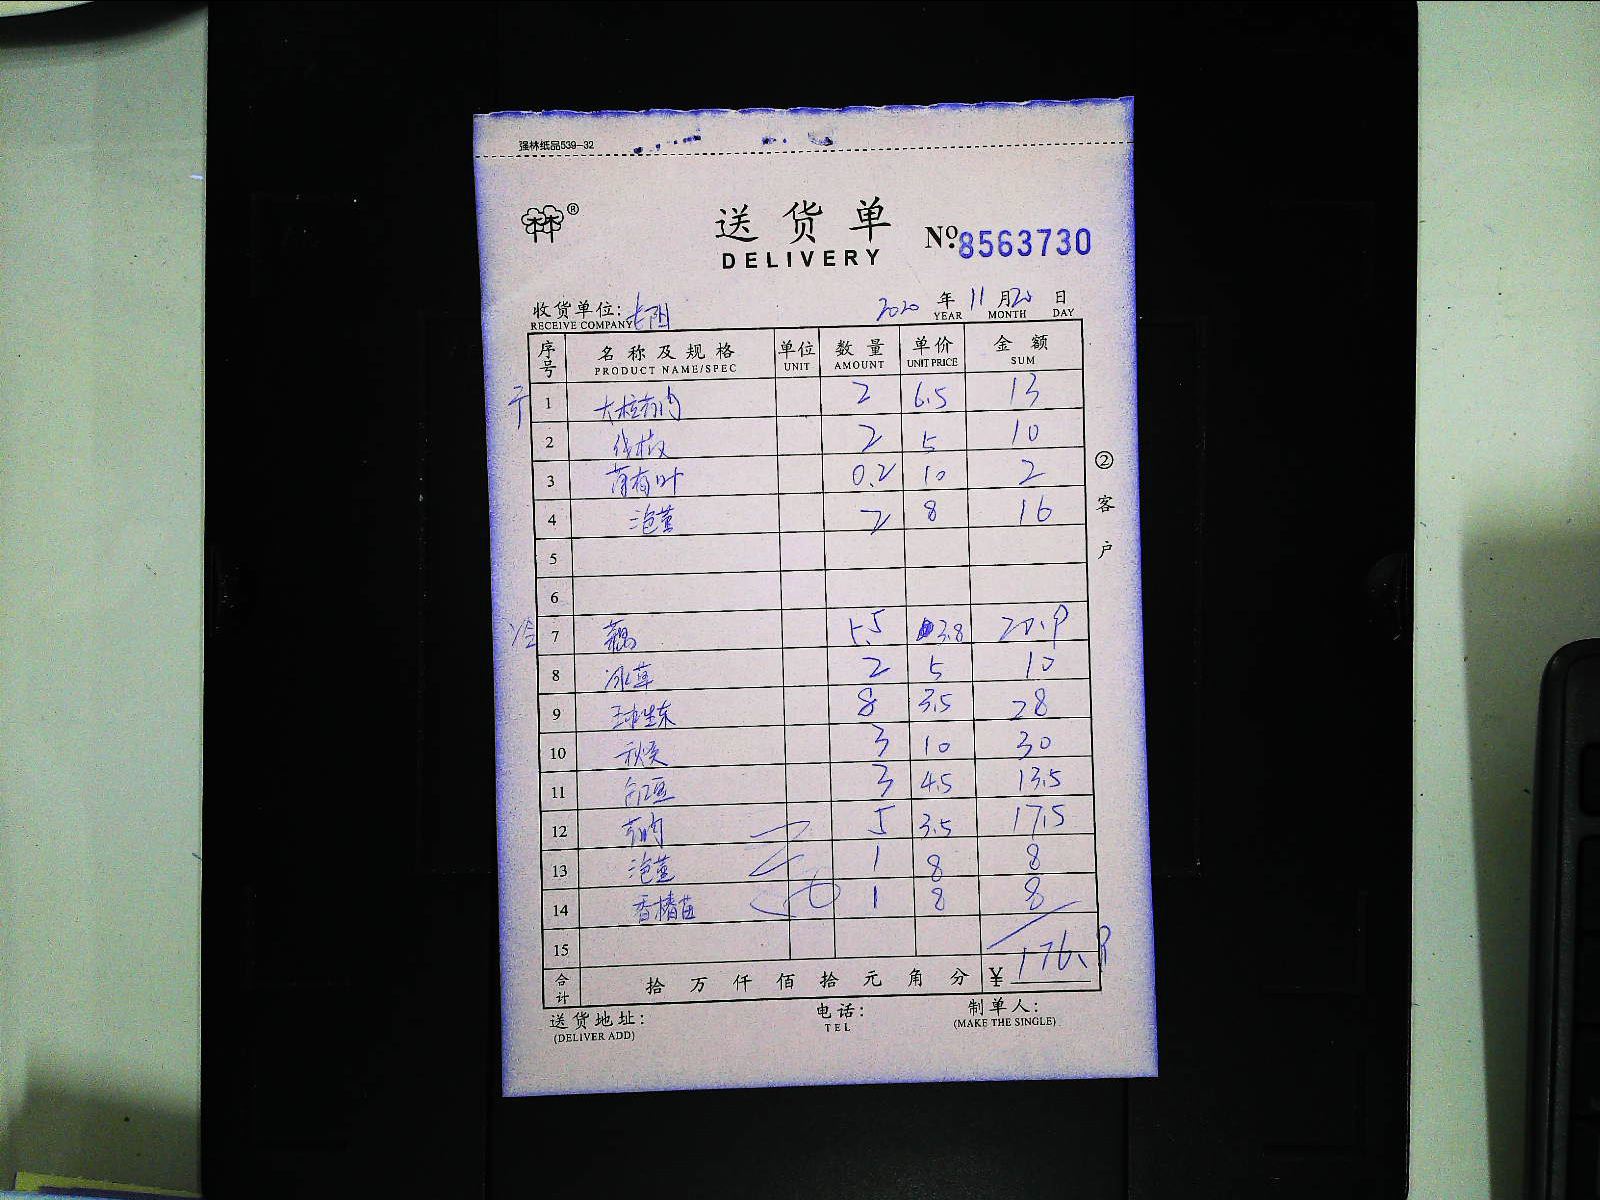 强林纸品539-32
®
送货单
DELIVERY
№ 8563730
收货单位: 长阳 2020 年 11 月 20 日
RECEIVE COMPANY YEAR MONTH DAY
序号 名称及规格 单位 数量 单价 金额
PRODUCT NAME/SPEC UNIT AMOUNT UNIT PRICE SUM
1 2 6.5 13
2 线椒 2 5 10
3 薄荷叶 0.2 10 2
4 泡姜 2 8 16
5
6
冷 7 藕 5.5 3.8 20.9
8 冰草 2 5 10
9 球生菜 8 3.5 28
10 秋葵 3 10 30
11 3 4.5 13.5
12 5 3.5 17.5
13 泡姜 1 8 8
14 香椿苗 1 8 8
15
合计 拾 万 仟 佰 拾 元 角 分 ¥ 176.9
送货地址: 电话: 制单人:
(DELIVER ADD) TEL (MAKE THE SINGLE)
②客户